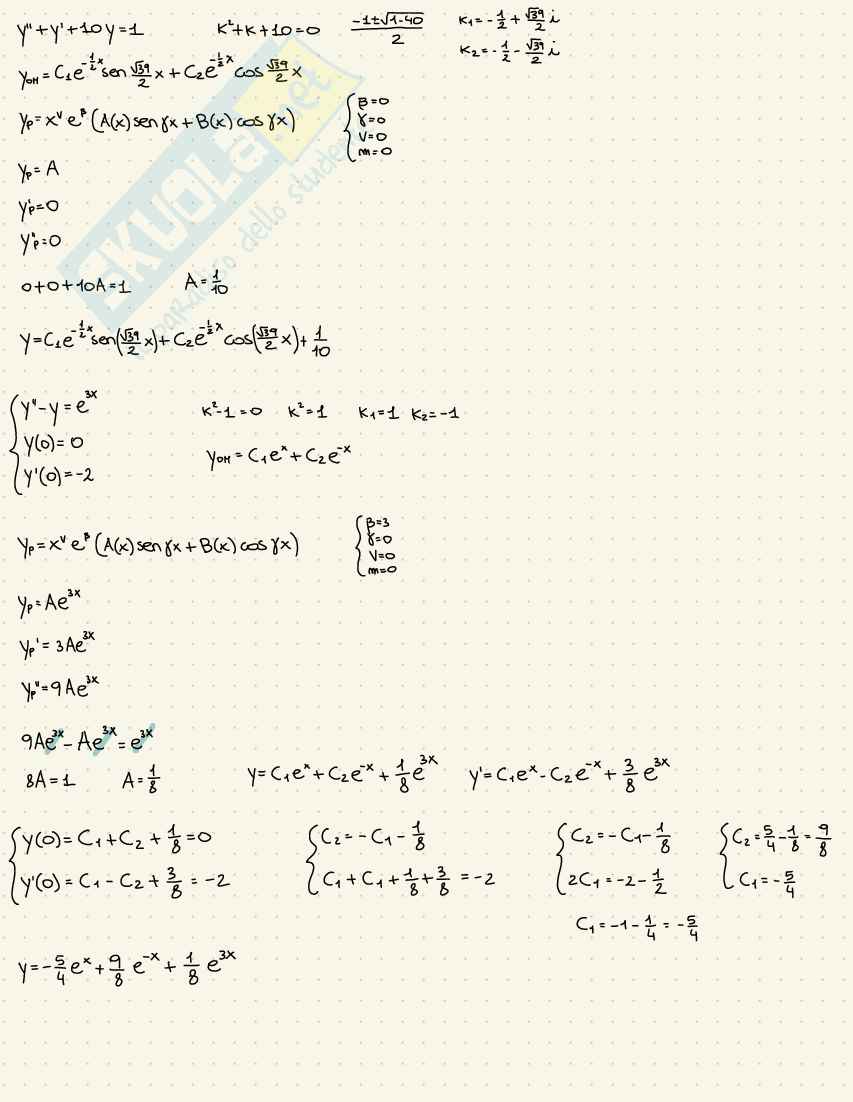 y"+y'+10y=1 k²+k+10=0 (-1±√(1-40))/2 k₁=-1/2+√39/2 i
k₂=-1/2-√39/2 i
yOH=C₁e^(-1/2x)sen √39/2 x+C₂e^(-1/2x)cos √39/2 x
yp=x^v e^β(A(x)senγx+B(x)cosγx) { β=0
γ=0
v=0
m=0
yp=A
y'p=0
y"p=0
0+0+10A=1 A=1/10
y=C₁e^(-1/2x)sen(√39/2 x)+C₂e^(-1/2x)cos(√39/2 x)+1/10
{ y"-y=e^3x k²-1=0 k²=1 k₁=1 k₂=-1
y(0)=0
y'(0)=-2
yOH=C₁e^x+C₂e^-x
yp=x^v e^β(A(x)senγx+B(x)cosγx) { β=3
γ=0
v=0
m=0
yp=Ae^3x
yp'=3Ae^3x
yp"=9Ae^3x
9Ae^3x-Ae^3x=e^3x
8A=1 A=1/8 y=C₁e^x+C₂e^-x+1/8e^3x y'=C₁e^x-C₂e^-x+3/8e^3x
{ y(0)=C₁+C₂+1/8=0 { C₂=-C₁-1/8 { C₂=-C₁-1/8 { C₂=5/4-1/8=9/8
y'(0)=C₁-C₂+3/8=-2 C₁+C₁+1/8+3/8=-2 2C₁=-2-1/2 C₁=-5/4
C₁=-1-1/4=-5/4
y=-5/4e^x+9/8e^-x+1/8e^3x
SKUOLA.net
il paradiso dello studente